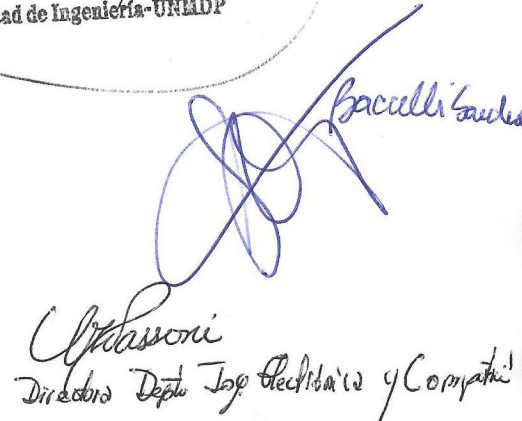 ad de Ingeniería-UNMDP
Baccelli
Passoni
Directora Depto Ing Electrónica y Computac